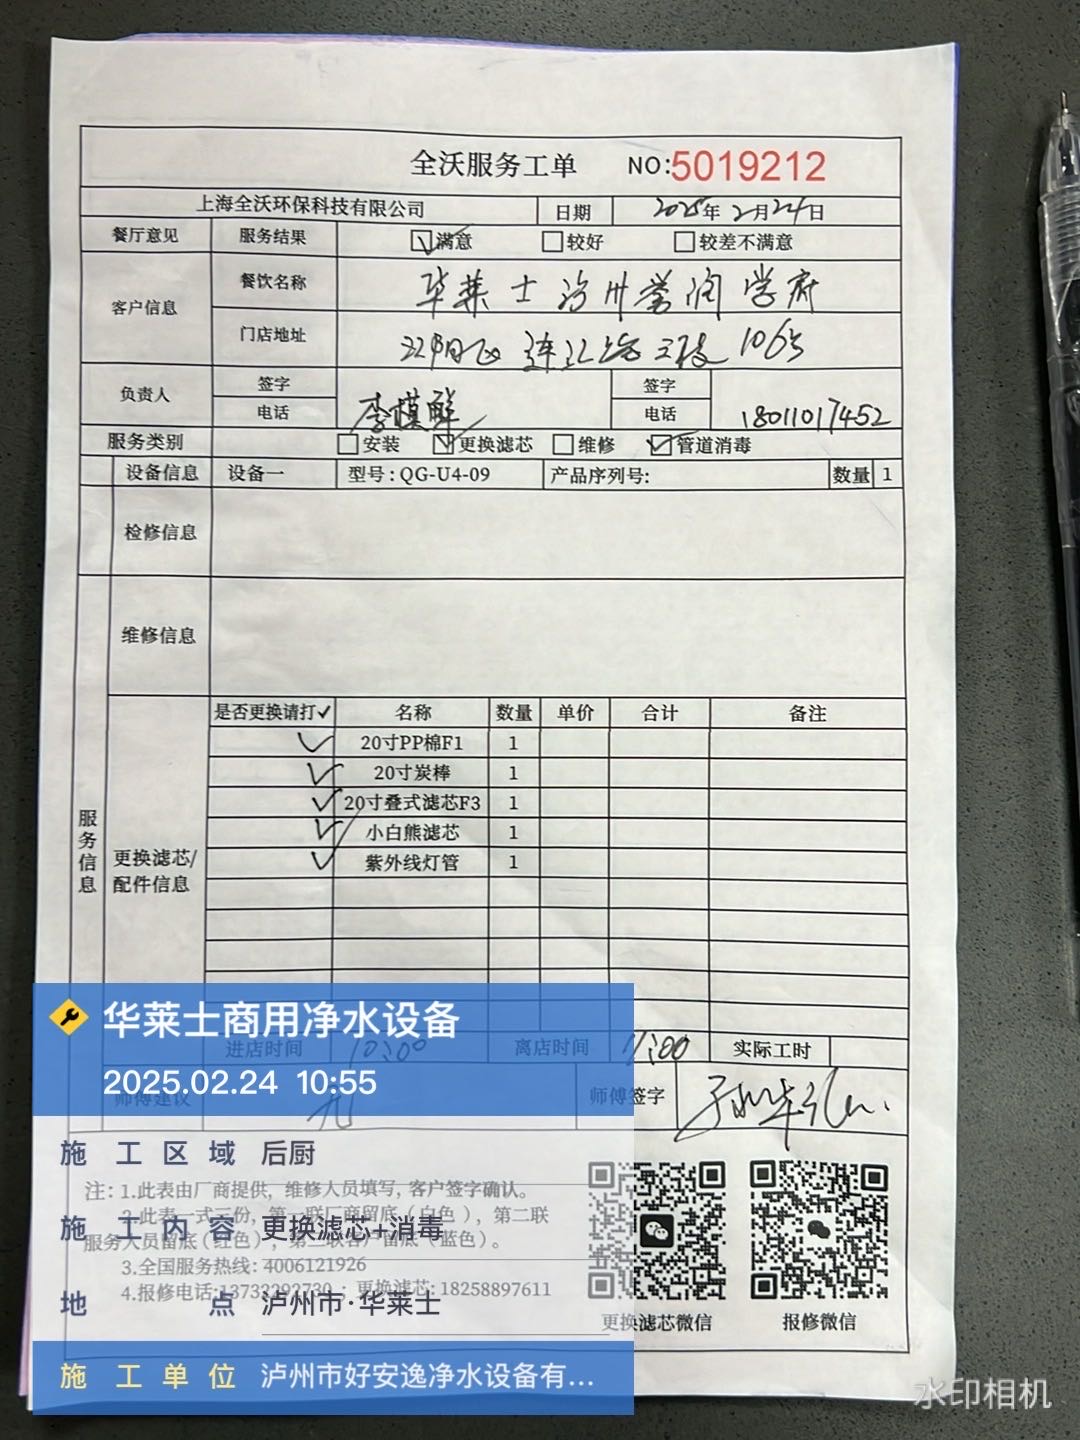 全沃服务工单 NO:5019212
上海全沃环保科技有限公司 日期 2025年2月24日
餐厅意见 服务结果 满意 较好 较差不满意
客户信息 餐饮名称 华莱士泸州誉润学府
门店地址 江阳区连江路三段106号
负责人 签字 李模鲜 签字
电话 电话 18011017452
服务类别 安装 更换滤芯 维修 管道消毒
设备信息 设备一 型号:QG-U4-09 产品序列号: 数量 1
检修信息
维修信息
服务信息
更换滤芯/配件信息
是否更换请打✓ 名称 数量 单价 合计 备注
✓ 20寸PP棉F1 1
✓ 20寸炭棒 1
✓ 20寸叠式滤芯F3 1
✓ 小白熊滤芯 1
✓ 紫外线灯管 1
进店时间 10:00 离店时间 11:00 实际工时
师傅建议 无 师傅签字
注:1.此表由厂商提供，维修人员填写，客户签字确认。
2.此表一式三份，第一联厂商留底（白色），第二联
服务人员留底（红色），第三联客户留底（蓝色）。
3.全国服务热线: 4006121926
4.报修电话:13733292730 ；更换滤芯:18258897611
更换滤芯微信 报修微信
华莱士商用净水设备
2025.02.24 10:55
施工区域 后厨
施工内容 更换滤芯+消毒
地点 泸州市·华莱士
施工单位 泸州市好安逸净水设备有...
水印相机